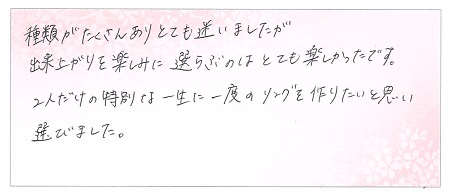 種類がたくさんありとても迷いましたが
出来上がりを楽しみに選らぶのはとても楽しかったです。
2人だけの特別な一生に一度のリングを作りたいと思い
選びました。